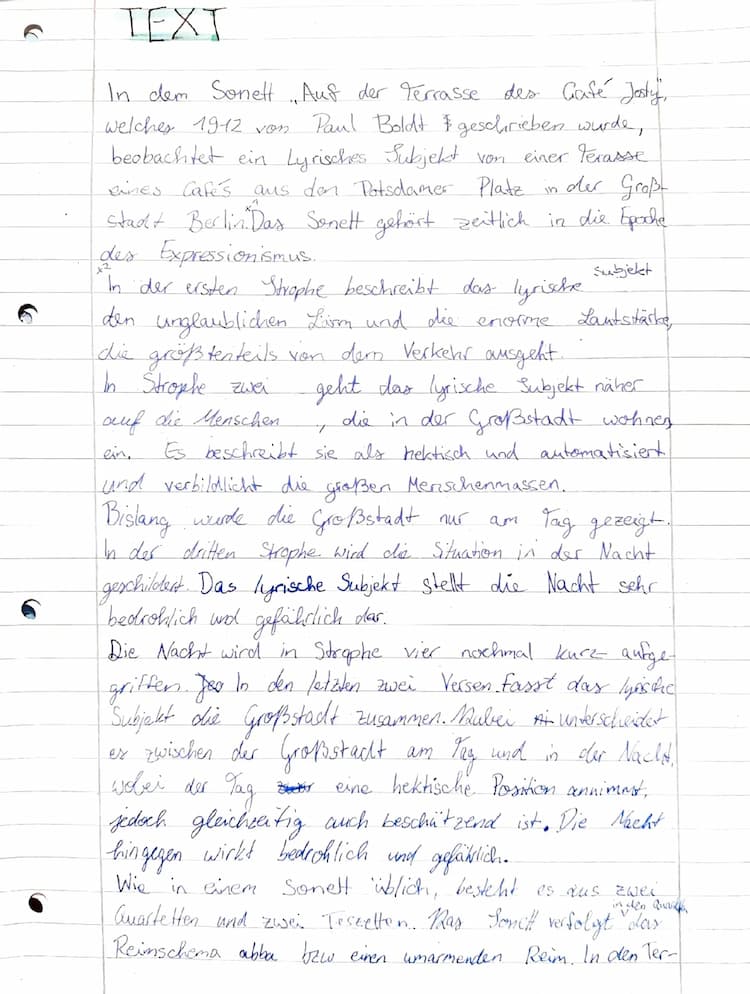 TEXT
In dem Sonett „Auf der Terrasse des Café Josty",
welches 1912 von Paul Boldt geschrieben wurde,
beobachtet ein Lyrisches Subjekt von einer Terasse
eines Cafés aus den Potsdamer Platz in der Groß-
stadt Berlin. x1 Das Sonett gehört zeitlich in die Epoche
des Expressionismus.
x2 In der ersten Strophe beschreibt das lyrische Subjekt
den unglaublichen Lärm und die enorme Lautstärke,
die größtenteils von dem Verkehr ausgeht.
In Strophe zwei geht das lyrische Subjekt näher
auf die Menschen, die in der Großstadt wohnen
ein. Es beschreibt sie als hektisch und automatisiert
und verbildlicht die großen Menschenmassen.
Bislang wurde die Großstadt nur am Tag gezeigt.
In der dritten Strophe wird die Situation in der Nacht
geschildert. Das lyrische Subjekt stellt die Nacht sehr
bedrohlich und gefährlich dar.
Die Nacht wird in Strophe vier nochmal kurz aufge-
griffen. In den letzten zwei Versen fasst das lyrische
Subjekt die Großstadt zusammen. Dabei unterscheidet
es zwischen der Großstadt am Tag und in der Nacht,
wobei der Tag eine hektische Position annimmt,
jedoch gleichzeitig auch beschützend ist. Die Nacht
hingegen wirkt bedrohlich und gefährlich.
Wie in einem Sonett üblich, besteht es aus zwei
Quartetten und zwei Terzetten. Das Sonett verfolgt in den Quartetten das
Reimschema abba bzw einen umarmenden Reim. In den Ter-